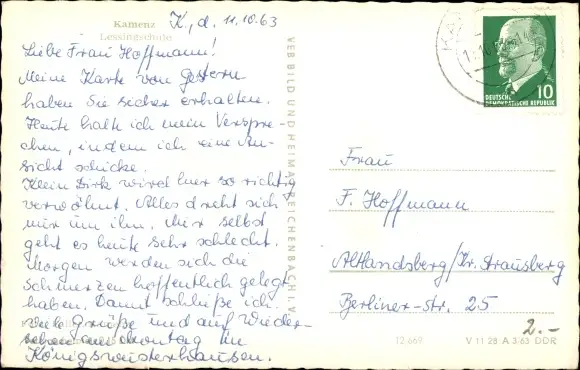 Kamenz
Lessingschule
K., d. 11.10.63
Liebe Frau Hoffmann!
Meine Karte von Gestern
haben Sie sicher erhalten.
Heute halte ich mein Verspre-
chen, indem ich eine An-
sicht schicke.
Klein Dirk wird hier so richtig
verwöhnt. Alles dreht sich
nur um ihn. Mir selbst
geht es heute sehr schlecht.
Morgen werden sich die
Schmerzen hoffentlich gelegt
haben. Damit schließe ich.
Viele Grüße und auf Wieder-
sehen am Montag in
Königswusterhausen.
VEB BILD UND HEIMAT REICHENBACH I. V.
DEUTSCHE
DEMOKRATISCHE REPUBLIK
10
Frau
F. Hoffmann
Altlandsberg/Kr. Strausberg
Berliner-Str. 25
2.-
12 669 V 11 28 A 3/63 DDR